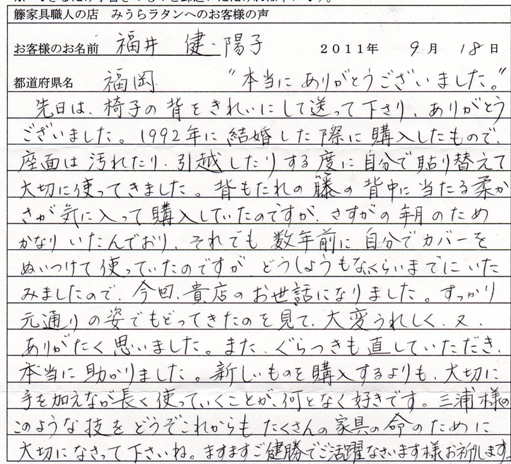 籐家具職人の店　みうらラタンへのお客様の声
お客様のお名前　福井　健・陽子　２０１１年　９月　１８日
都道府県名　福岡　“本当に ありがとうございました。”
先日は、椅子の背をきれいにして送って下さり、ありがとう
ございました。1992年に結婚した際に購入したもので、
座面は汚れたり、引越したりする度に自分で貼り替えて
大切に使ってきました。背もたれの籐の背中に当たる柔か
さが気に入って購入していたのですが、さすがの年月のため
かなりいたんでおり、それでも数年前に自分でカバーを
ぬいつけて使っていたのですが、どうしようもなくらいまでにいた
みましたので、今回、貴店のお世話になりました。すっかり
元通りの姿でもどってきたのを見て、大変うれしく、又、
ありがたく思いました。また、ぐらつきも直していただき、
本当に助かりました。新しいものを購入するよりも、大切に
手を加えなが長く使っていくことが、何となく好きです。三浦様の
このような技をどうぞこれからもたくさんの家具の命のために
大切になさって下さいね。ますますご健勝でご活躍なさいます様お祈りします。